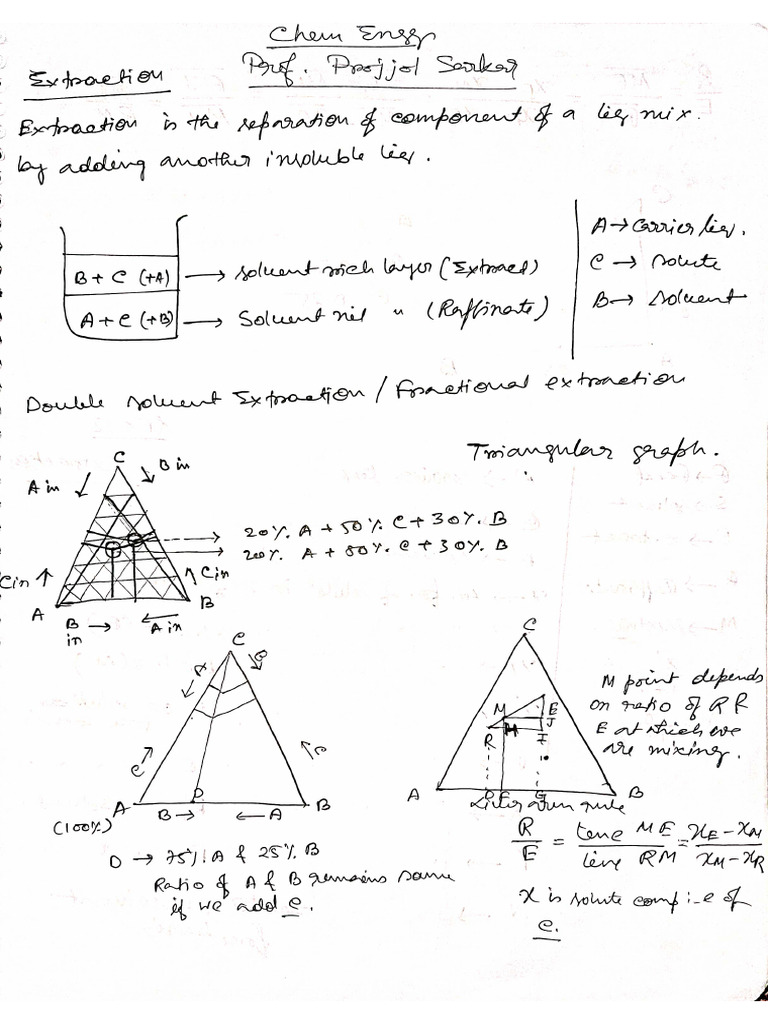 Chem Engg
Prof. Projjol Sarkar
Extraction
Extraction is the separation of component of a liq mix.
by adding another insoluble liq.
B + C (+A) → solvent rich layer (Extract)
A + C (+B) → Solvent " (Raffinate)
A → Carrier liq.
C → solute
B → Solvent
Double solvent Extraction / Fractional extraction
Triangular graph.
C
A in
B in
20%. A + 50%. C + 30%. B
20%. A + 50%. C + 30%. B
C in
C in
A
B
B in →
← A in
C
A
B
C
C
A
D
B
(100%)
B →
← A
D → 75%. A & 25%. B
Ratio of A & B remains same
if we add C.
C
M
E
H
J
R
I
A
D
F
G
B
M point depends
on ratio of R &
E at which we
are mixing.
Liver arm rule
R/E = line ME / line RM = xE - xM / xM - xR
x is solute comp i.e of
C.